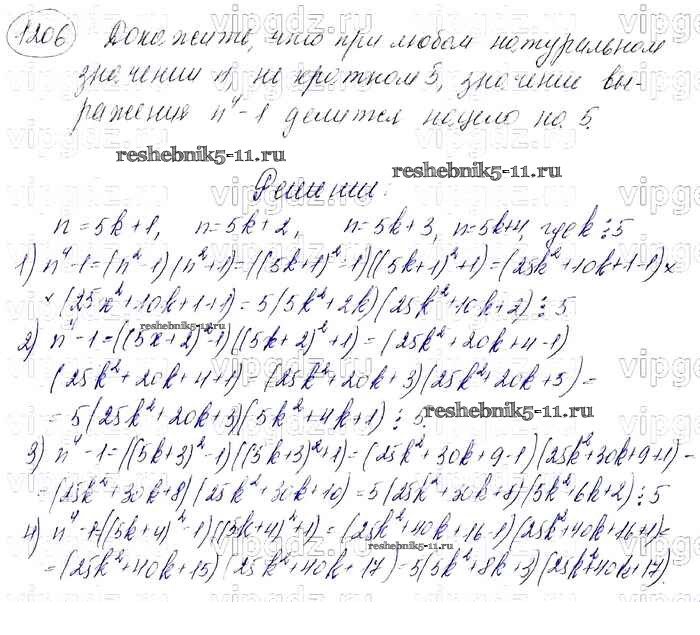 1206 Докажите, что при любом натуральном
значении n, не кратном 5, значение вы-
ражения n⁴-1 делится нацело на 5.
reshebnik5-11.ru reshebnik5-11.ru
Решение:
n=5k+1, n=5k+2, n=5k+3, n=5k+4, где k⋮5
1) n⁴-1=(n²-1)(n²+1)=((5k+1)²-1)((5k+1)²+1)=(25k²+10k+1-1)×
×(25x²+10k+1+1)=5(5k²+2k)(25k²+10k+2)⋮5
reshebnik5-11.ru
2) n⁴-1=((5x+2)²-1)((5k+2)²+1)=(25k²+20k+4-1)
(25k²+20k+4+1)=(25k²+20k+3)(25k²+20k+5)=
=5(25k²+20k+3)(5k²+4k+1)⋮5.
reshebnik5-11.ru
3) n⁴-1=((5k+3)²-1)((5k+3)²+1)=(25k²+30k+9-1)(25k²+30k+9+1)=
=(25k²+30k+8)(25k²+30k+10)=5(25k²+30k+8)(5k²+6k+2)⋮5
4) n⁴-1=((5k+4)²-1)((5k+4)²+1)=(25k²+40k+16-1)(25k²+40k+16+1)=
reshebnik5-11.ru
=(25k²+40k+15)(25k²+40k+17)=5(5k²+8k+3)(25k²+40k+17)